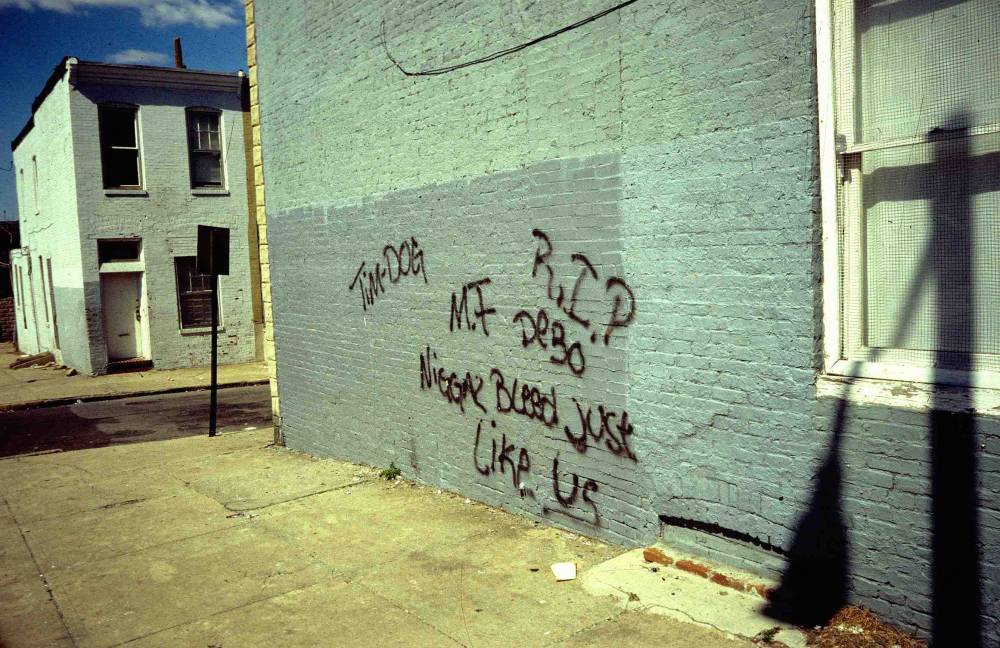 TIM-DOG
R.I.P
M.F DeBo
Niggaz Bleed Just
Like Us